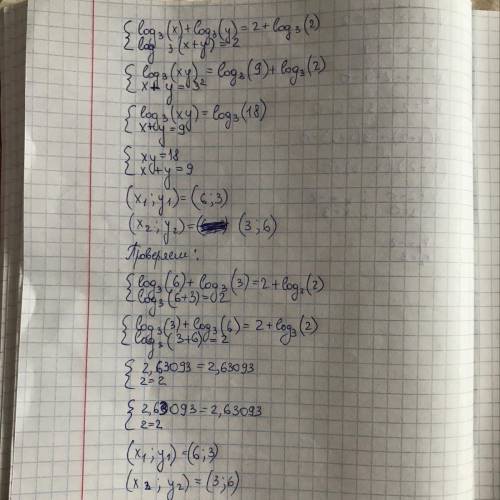 { log₃(x)+log₃(y)=2+log₃(2)
log₃(x+y)=2
{ log₃(xy)=log₃(9)+log₃(2)
x+y=3²
{ log₃(xy)=log₃(18)
x+y=9
{ xy=18
x+y=9
(x₁;y₁)=(6;3)
(x₂;y₂)= (3;6)
Проверяем:
{ log₃(6)+log₃(3)=2+log₃(2)
log₃(6+3)=2
{ log₃(3)+log₃(6)=2+log₃(2)
log₃(3+6)=2
{ 2,63093=2,63093
2=2
{ 2,63093=2,63093
2=2
(x₁;y₁)=(6;3)
(x₂;y₂)=(3;6)